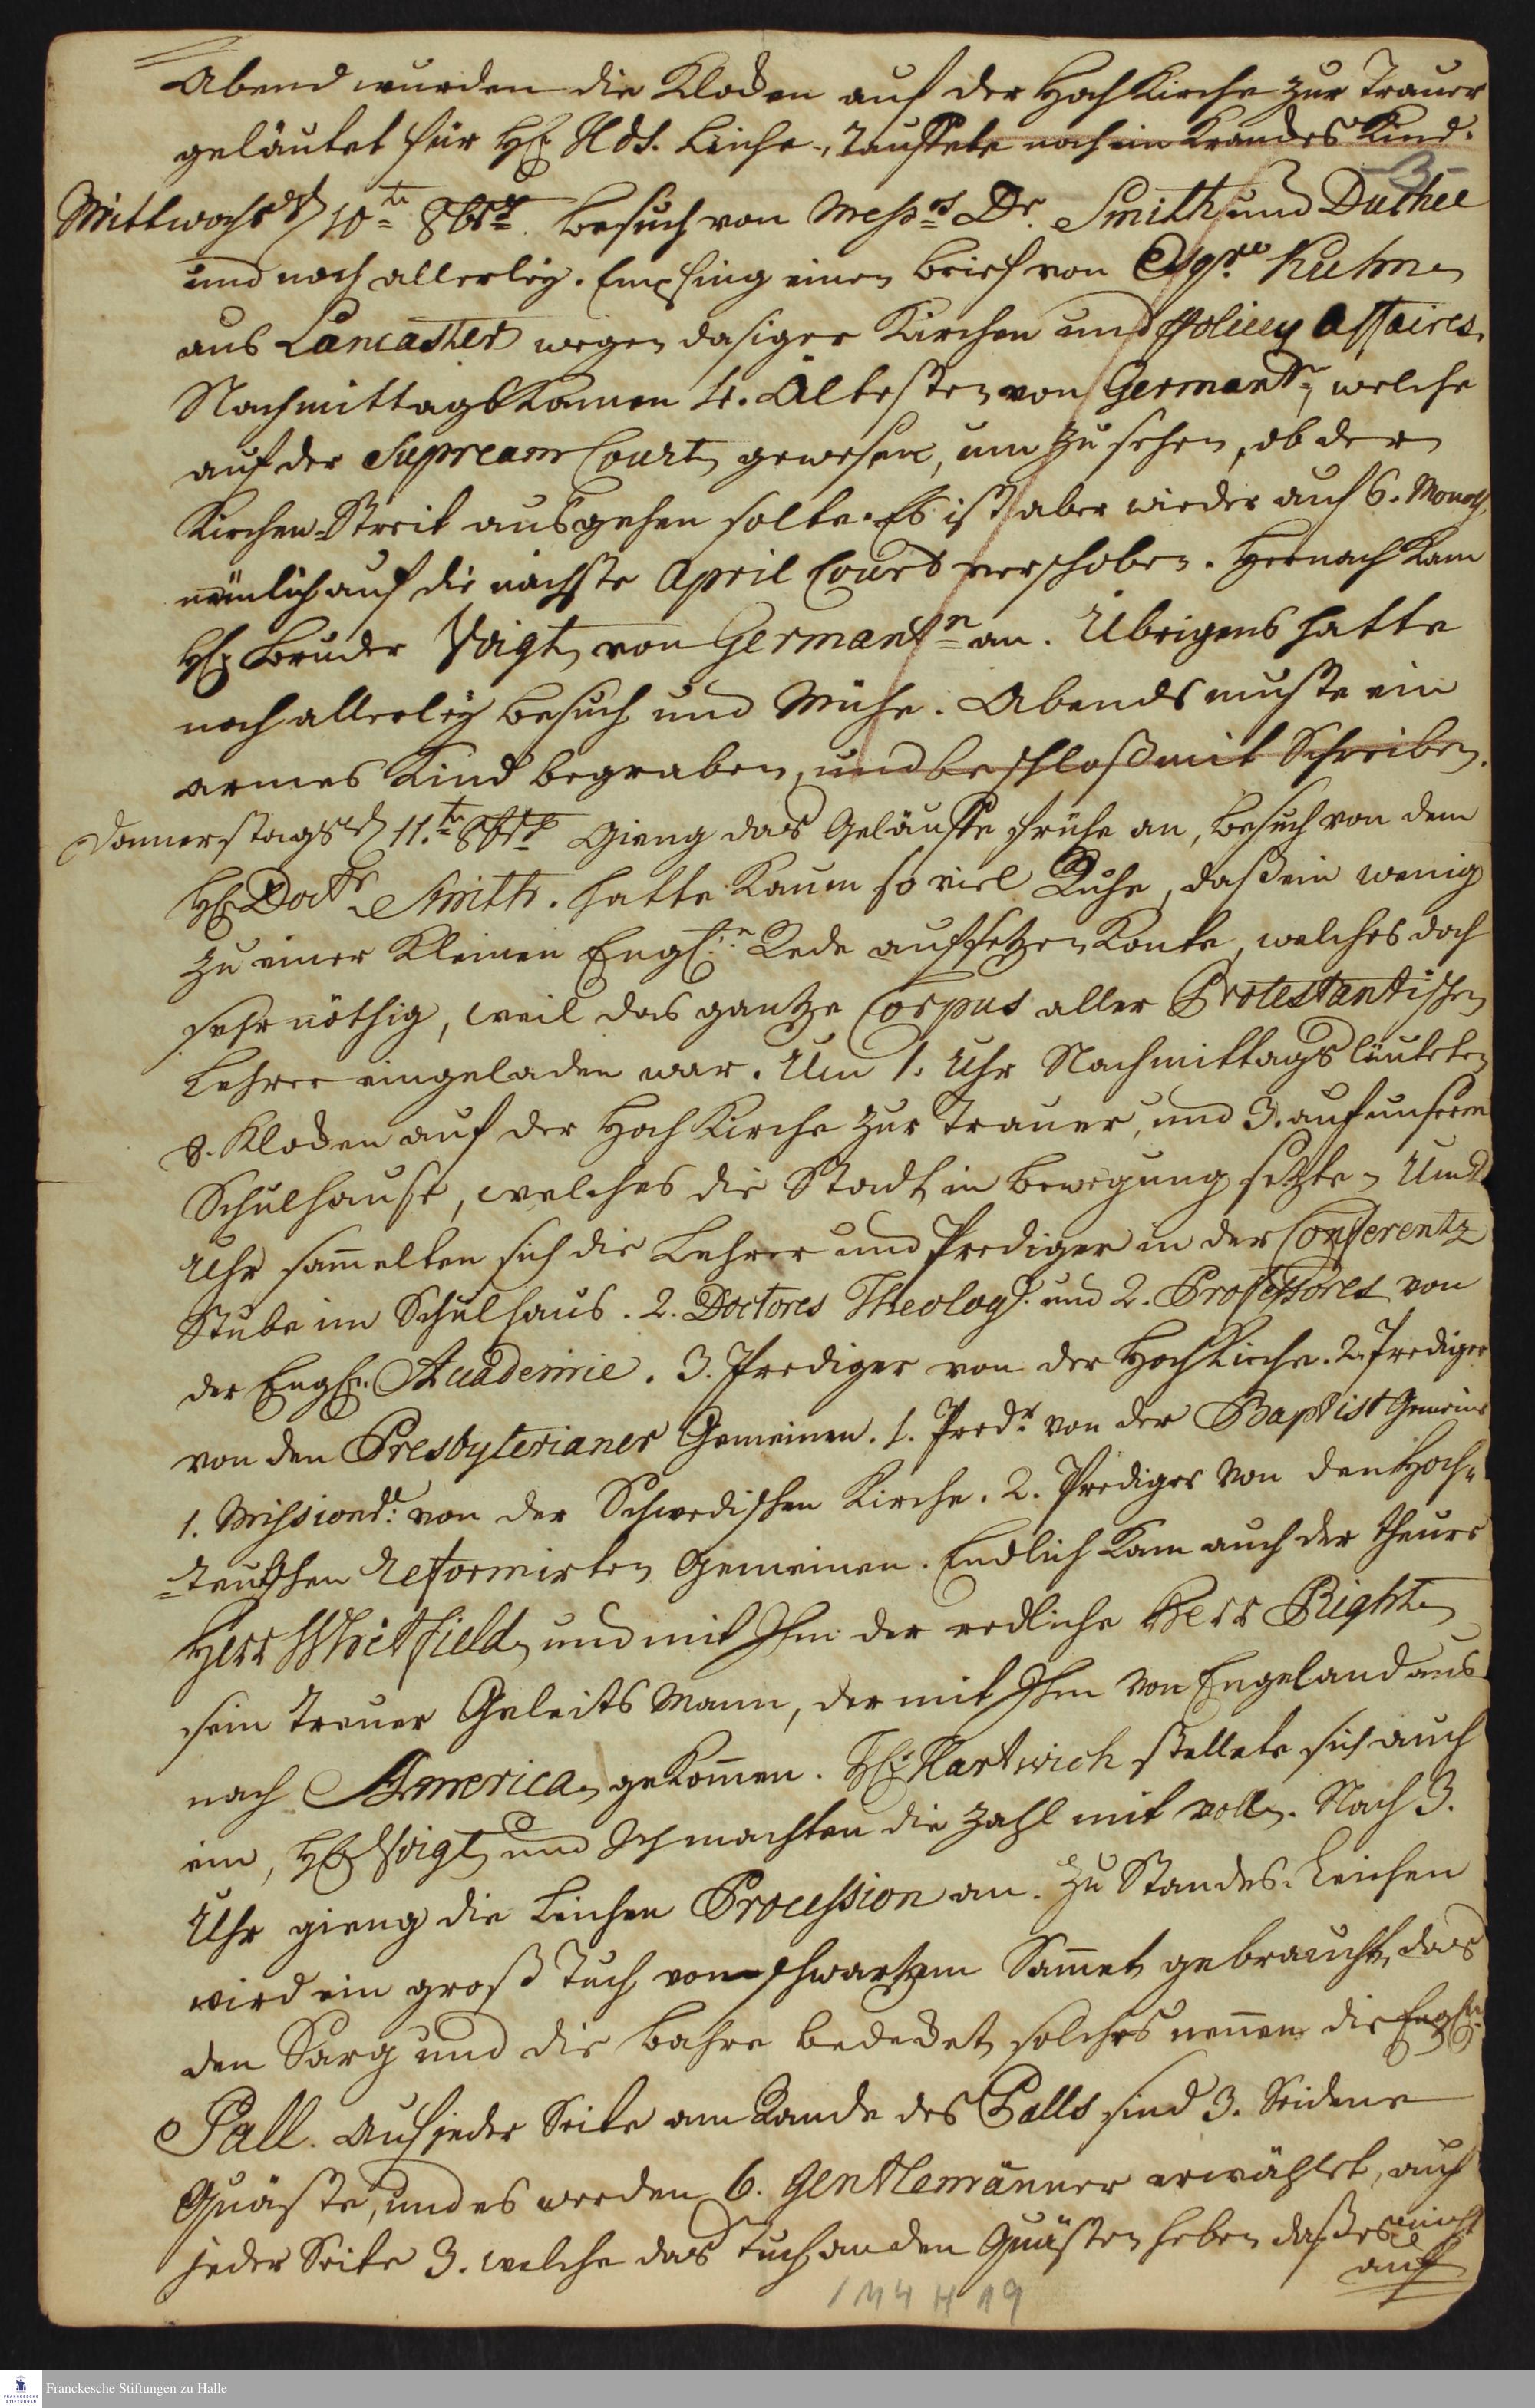 Abend wurden die Klocken auf der Hoch Kirche zur Trauer
geläutet für H. Hds. Leiche, Tauffete noch ein Krankes Kind.
-3-
Mittwochs d 10te 8br. Besuch von Messrs Dr. Smith und Duchee
und noch allerley. Empfing einen Brief von Esqre Kuhn
aus Lancaster wegen dasiger Kirchen und Policey Affaires.
Nachmittags kamen 4. Ältesten von Germantn, welche
auf der Supream Court gewesen, um zu sehen, ob der
Kirchen-Streit ausgehen solte. Es ist aber wieder auf 6. Monath,
nemlich auf die nächste April Court verschoben. Hernach kam
H Bruder Voigt von Germantn an. Übrigens hatte
noch allerley Besuch und Mühe. Abends muste ein
armes Kind begraben, und beschloß mit Schreiben.
Donnerstags d 11.te 8br Gieng das Geläuffe frühe an, Besuch von dem
H Doctr Smith. hatte kaum so viel Ruhe, daß ein wenig
zu einer kleinen Engl.n Rede aufsetzen konte, welches doch
sehr nöthig, weil das gantze Corpus aller Protestantischen
Lehrer eingeladen war. Um 1. Uhr Nachmittags läuteten
8. Klocken auf der Hoch Kirche zur Trauer, und 3. auf unserm
Schulhause, welches die Stadt in Bewegung setzte. Um 2
Uhr sam̄elten sich die Lehrer und Prediger in der Conferentz
Stube im Schulhaus. 2. Doctores Theolog. und 2. Professores von
der Engl.n Academie. 3. Prediger von der Hoch Kirche. 2. Prediger
von den Presbyterianer Gemeinen. 1. Predr von der Baptist Gemeine
1. Missiond: von der Schwedischen Kirche. 2. Prediger von den Hoch=
=teutschen Reformirten Gemeinen. Endlich kam auch der theure
Herr Whitfield, und mit Ihm der redliche Herr Right
sein treuer Geleits Mann, der mit Ihm von Engeland aus
nach America gekom̄en. H. Hartwich stellete sich auch
ein, H Voigt und Ich machten die Zahl mit voll. Nach 3.
Uhr gieng die Leichen Procession an. Zu Standes-Leichen
wird ein groß Tuch von schwartzem Sam̄et gebraucht, das
den Sarg und die Bahre bedecket, solches nen̄en die Engln
Pall. Auf jeder Seite am Rande des Palls sind 3. Seidene
Quäste, und es werden 6. Gentlemänner erwählet, auf
jeder Seite 3. welche das Tuch an den Quästen heben daß es nicht
auf
144 H 19
Franckesche Stiftungen zu Halle